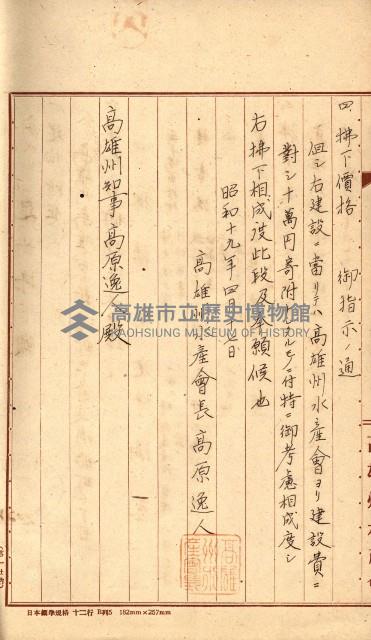 四、拂下價格 御指示ノ通
但シ右建設ニ當リテハ高雄州水產會ヨリ建設費ニ
對シ十萬円寄附
付特ニ御考慮相成度シ
右拂下相成度此段及奉願候也
昭和十九年四月 日
高雄州水產會長 高原逸人
高雄州水產會
高雄州知事 高原逸人殿
高雄市立歷史博物館
KAOHSIUNG MUSEUM OF HISTORY
日本標準規格 十二行 B列5 182mm×257mm